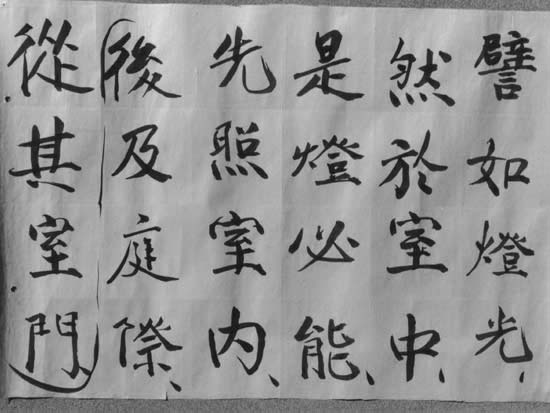 譬如燈光、
然於室中、
是燈必能、
先照室內、
後及庭際、
從其室門、